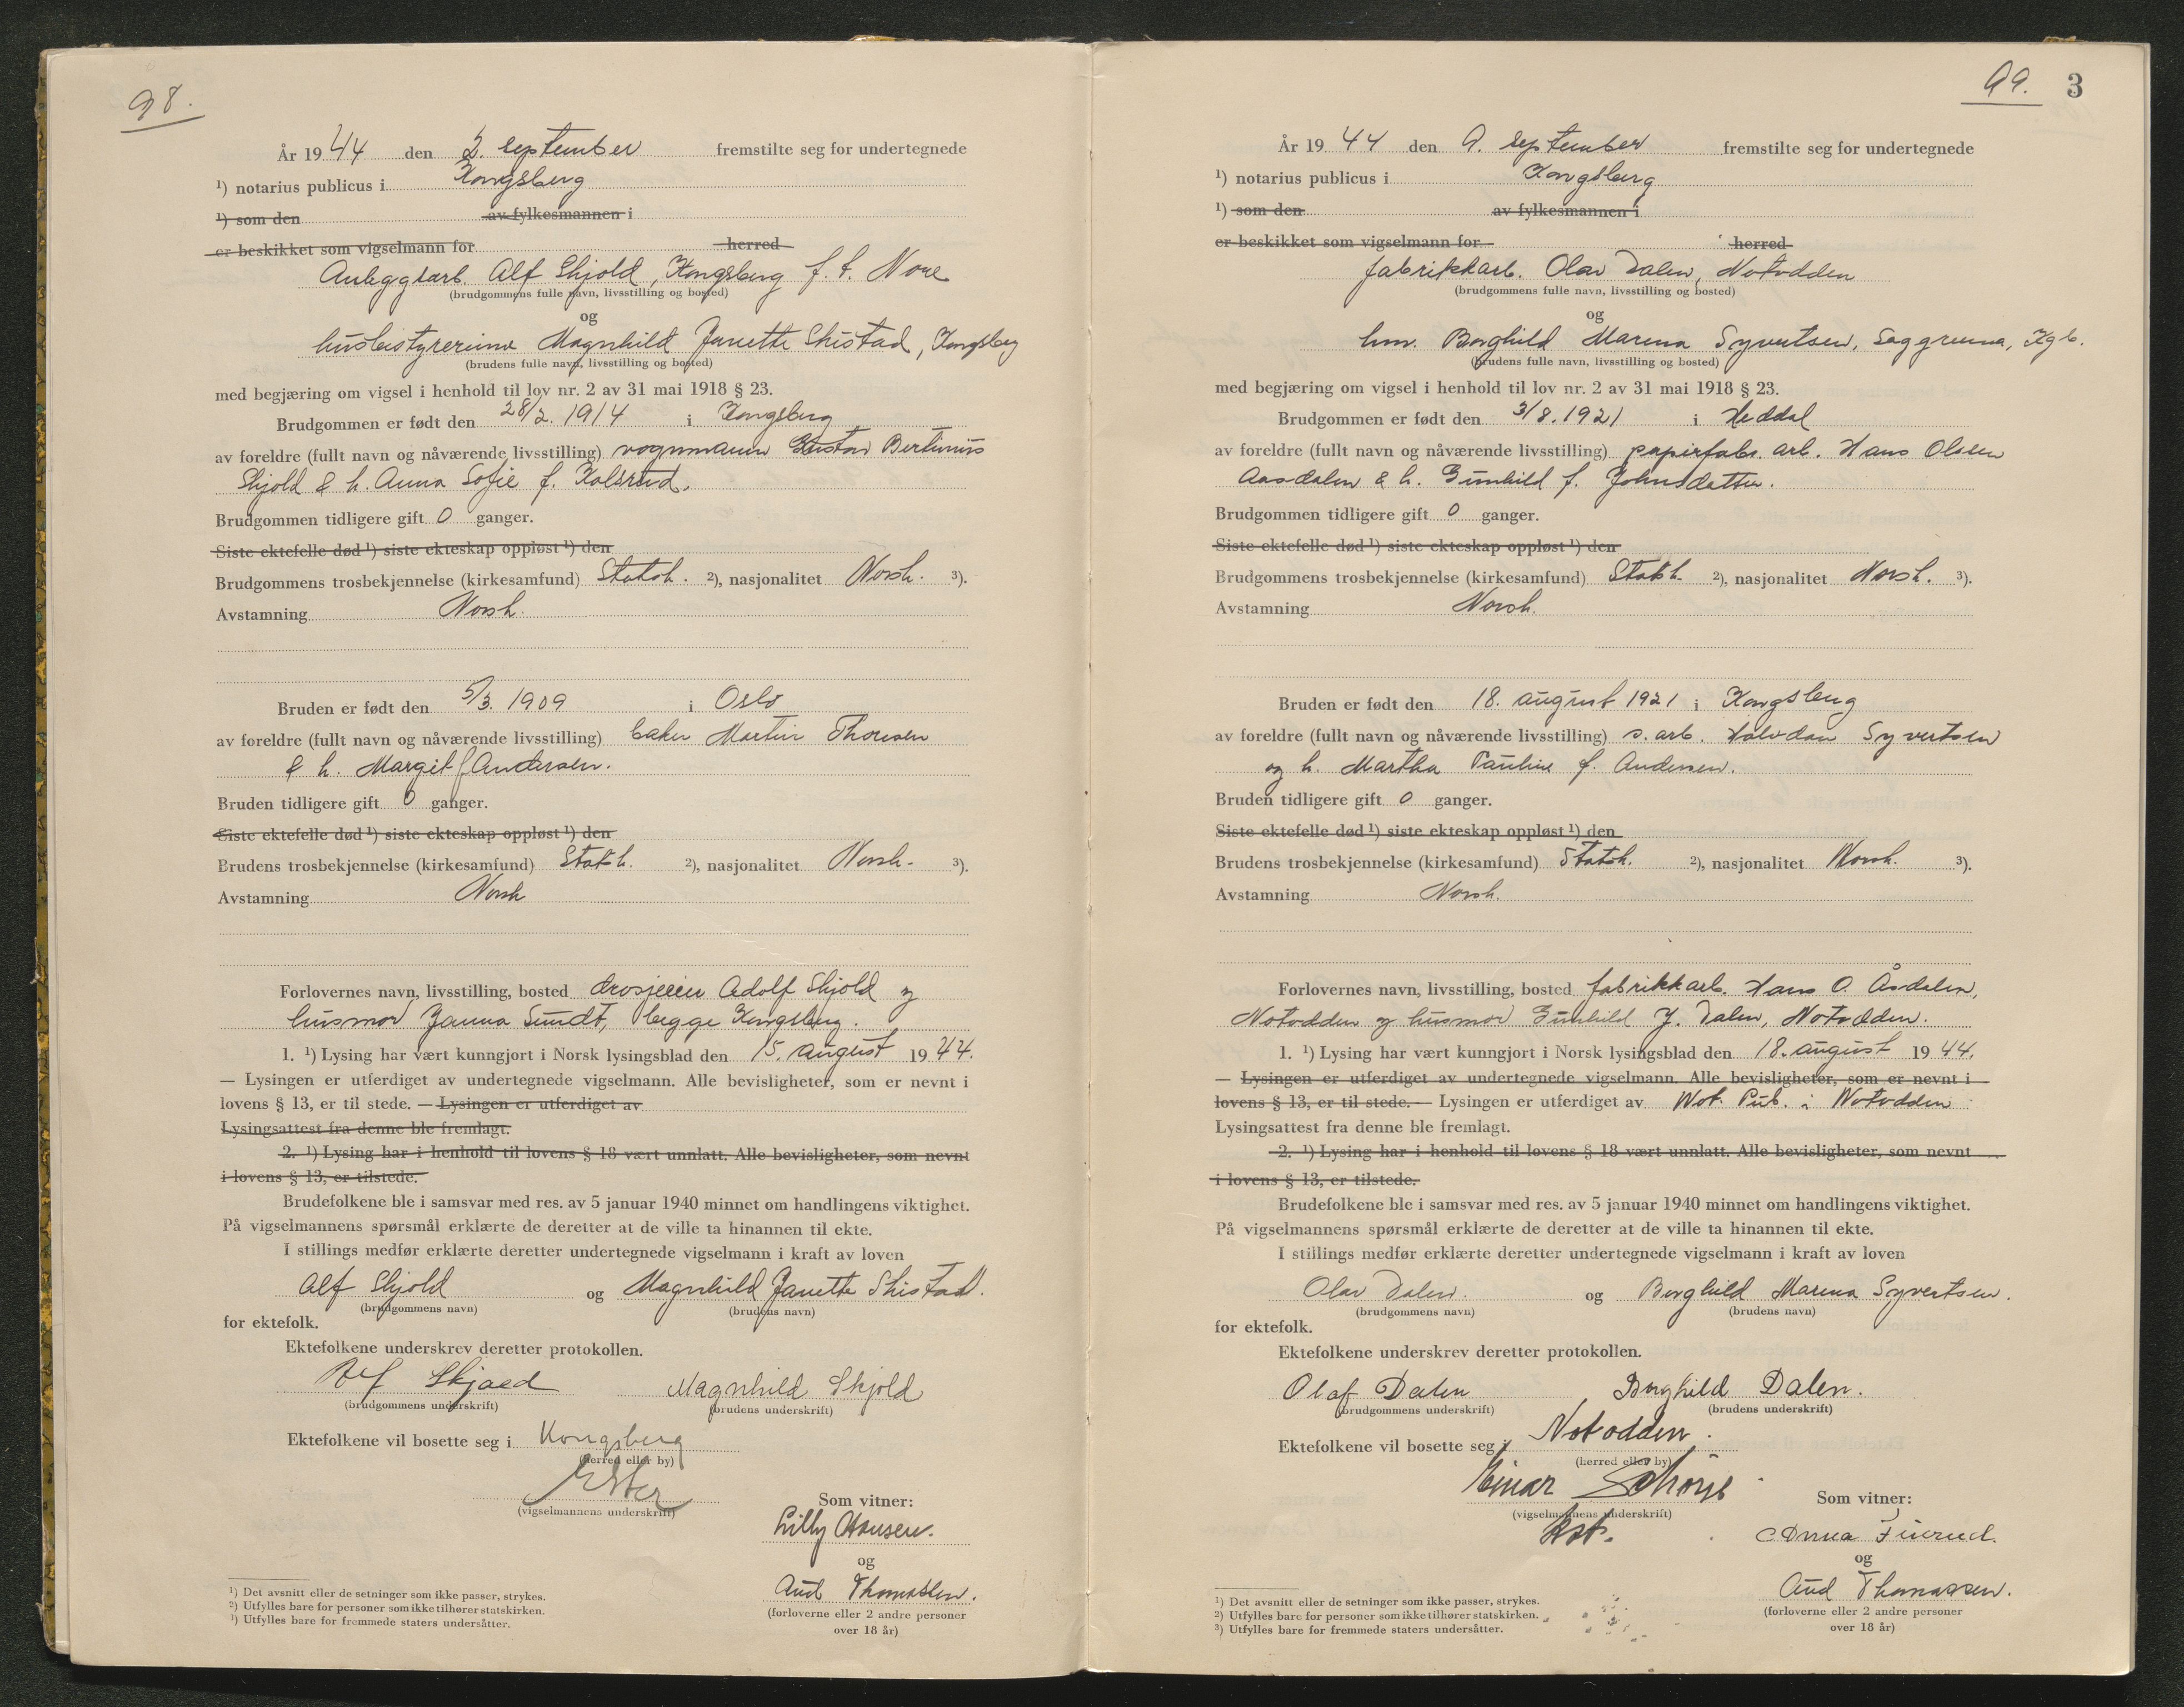 98.
År 1944 den 2. september fremstilte seg for undertegnede
¹) notarius publicus i Kongsberg
¹) som den av fylkesmannen i
er beskikket som vigselmann for herred
Anleggsarb. Alf Skjold, Kongsberg f. t. Nore
(brudgommens fulle navn, livsstilling og bosted)
og
husbestyrerinne Magnhild Janette Skistad, Kongsberg
(brudens fulle navn, livsstilling og bosted)
med begjæring om vigsel i henhold til lov nr. 2 av 31 mai 1918 § 23.
Brudgommen er født den 28/2. 1914 i Kongsberg
av foreldre (fullt navn og nåværende livsstilling) vognmann Gustav Bertinius
Skjold & h. Anna Sofie f. Kolsrud.
Brudgommen tidligere gift 0 ganger.
Siste ektefelle død ¹) siste ekteskap oppløst ¹) den
Brudgommens trosbekjennelse (kirkesamfund) Statsk. ²), nasjonalitet Norsk. ³).
Avstamning Norsk.
Bruden er født den 5/3. 1909 i Oslo
av foreldre (fullt navn og nåværende livsstilling) baker Martin Thoresen
& h. Margit f Andersen.
Bruden tidligere gift 0 ganger.
Siste ektefelle død ¹) siste ekteskap oppløst ¹) den
Brudens trosbekjennelse (kirkesamfund) Statsk. ²), nasjonalitet Norsk. ³).
Avstamning Norsk
Forlovernes navn, livsstilling, bosted drosjeeier Adolf Skjold og
husmor Janna Sundt, begge Kongsberg.
1. ¹) Lysing har vært kunngjort i Norsk lysingsblad den 15. august 1944.
— Lysingen er utferdiget av undertegnede vigselmann. Alle bevisligheter, som er nevnt i
lovens § 13, er til stede. — Lysingen er utferdiget av
Lysingsattest fra denne ble fremlagt.
2. ¹) Lysing har i henhold til lovens § 18 vært unnlatt. Alle bevisligheter, som nevnt
i lovens § 13, er tilstede.
Brudefolkene ble i samsvar med res. av 5 januar 1940 minnet om handlingens viktighet.
På vigselmannens spørsmål erklærte de deretter at de ville ta hinannen til ekte.
I stillings medfør erklærte deretter undertegnede vigselmann i kraft av loven
Alf Skjold og Magnhild Janette Skistad.
(brudgommens navn) (brudens navn)
for ektefolk.
Ektefolkene underskrev deretter protokollen.
Alf Skjold Magnhild Skjold
(brudgommens underskrift) (brudens underskrift)
Ektefolkene vil bosette seg i Kongsberg
(herred eller by)
(vigselmannens underskrift)
Som vitner:
Lilly Hansen.
og
Aud Thomassen.
(forloverne eller 2 andre personer
over 18 år)
¹) Det avsnitt eller de setninger som ikke passer, strykes.
²) Utfylles bare for personer som ikke tilhører statskirken.
¹) Utfylles bare for fremmede staters undersåtter.
99. 3
År 1944 den 9. september fremstilte seg for undertegnede
¹) notarius publicus i Kongsberg
¹) som den av fylkesmannen i
er beskikket som vigselmann for herred
fabrikkarb. Olav Dalen, Notodden
(brudgommens fulle navn, livsstilling og bosted)
og
hm. Borghild Marena Syvertsen, Saggrenna, Kgb.
(brudens fulle navn, livsstilling og bosted)
med begjæring om vigsel i henhold til lov nr. 2 av 31 mai 1918 § 23.
Brudgommen er født den 3/8. 1921 i Heddal
av foreldre (fullt navn og nåværende livsstilling) papirfabr. arb. Hans Olsen
Aasdalen & h. Gunhild f. Johnsdatter.
Brudgommen tidligere gift 0 ganger.
Siste ektefelle død ¹) siste ekteskap oppløst ¹) den
Brudgommens trosbekjennelse (kirkesamfund) Statsk. ²), nasjonalitet Norsk. ³).
Avstamning Norsk.
Bruden er født den 18. august 1921 i Kongsberg
av foreldre (fullt navn og nåværende livsstilling) s. arb. Halvdan Syvertsen
og h. Martha Pauline f. Andersen.
Bruden tidligere gift 0 ganger.
Siste ektefelle død ¹) siste ekteskap oppløst ¹) den
Brudens trosbekjennelse (kirkesamfund) Statsk. ²), nasjonalitet Norsk. ³).
Avstamning Norsk.
Forlovernes navn, livsstilling, bosted fabrikkarb. Hans O. Åsdalen,
Notodden og husmor Gunhild J. Dalen, Notodden.
1. ¹) Lysing har vært kunngjort i Norsk lysingsblad den 18. august 1944.
— Lysingen er utferdiget av undertegnede vigselmann. Alle bevisligheter, som er nevnt i
lovens § 13, er til stede. — Lysingen er utferdiget av Not. Pub. i Notodden
Lysingsattest fra denne ble fremlagt.
2. ¹) Lysing har i henhold til lovens § 18 vært unnlatt. Alle bevisligheter, som nevnt
i lovens § 13, er tilstede.
Brudefolkene ble i samsvar med res. av 5 januar 1940 minnet om handlingens viktighet.
På vigselmannens spørsmål erklærte de deretter at de ville ta hinannen til ekte.
I stillings medfør erklærte deretter undertegnede vigselmann i kraft av loven
Olav Dalen. og Borghild Marena Syvertsen.
(brudgommens navn) (brudens navn)
for ektefolk.
Ektefolkene underskrev deretter protokollen.
Olaf Dalen Borghild Dalen.
(brudgommens underskrift) (brudens underskrift)
Ektefolkene vil bosette seg i Notodden.
(herred eller by)
Einar
(vigselmannens underskrift)
Kst.
Som vitner:
Anna Furud.
og
Aud Thomassen.
(forloverne eller 2 andre personer
over 18 år)
¹) Det avsnitt eller de setninger som ikke passer, strykes.
²) Utfylles bare for personer som ikke tilhører statskirken.
³) Utfylles bare for fremmede staters undersåtter.